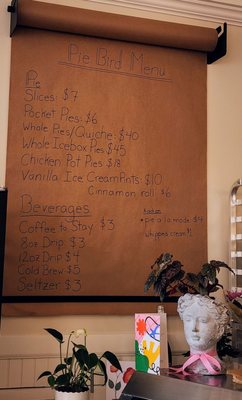 Pie Bird Menu
Pie
Slices: $7
Pocket Pies: $6
Whole Pies/Quiche: $40
Whole Icebox Pies $45
Chicken Pot Pies $18
Vanilla Ice Cream Pints: $10
Cinnamon roll $6
Beverages
Coffee to Stay $3
8oz Drip $3
12oz Drip $4
Cold Brew $5
Seltzer $3
• pie a la mode $4
whipped cream $1